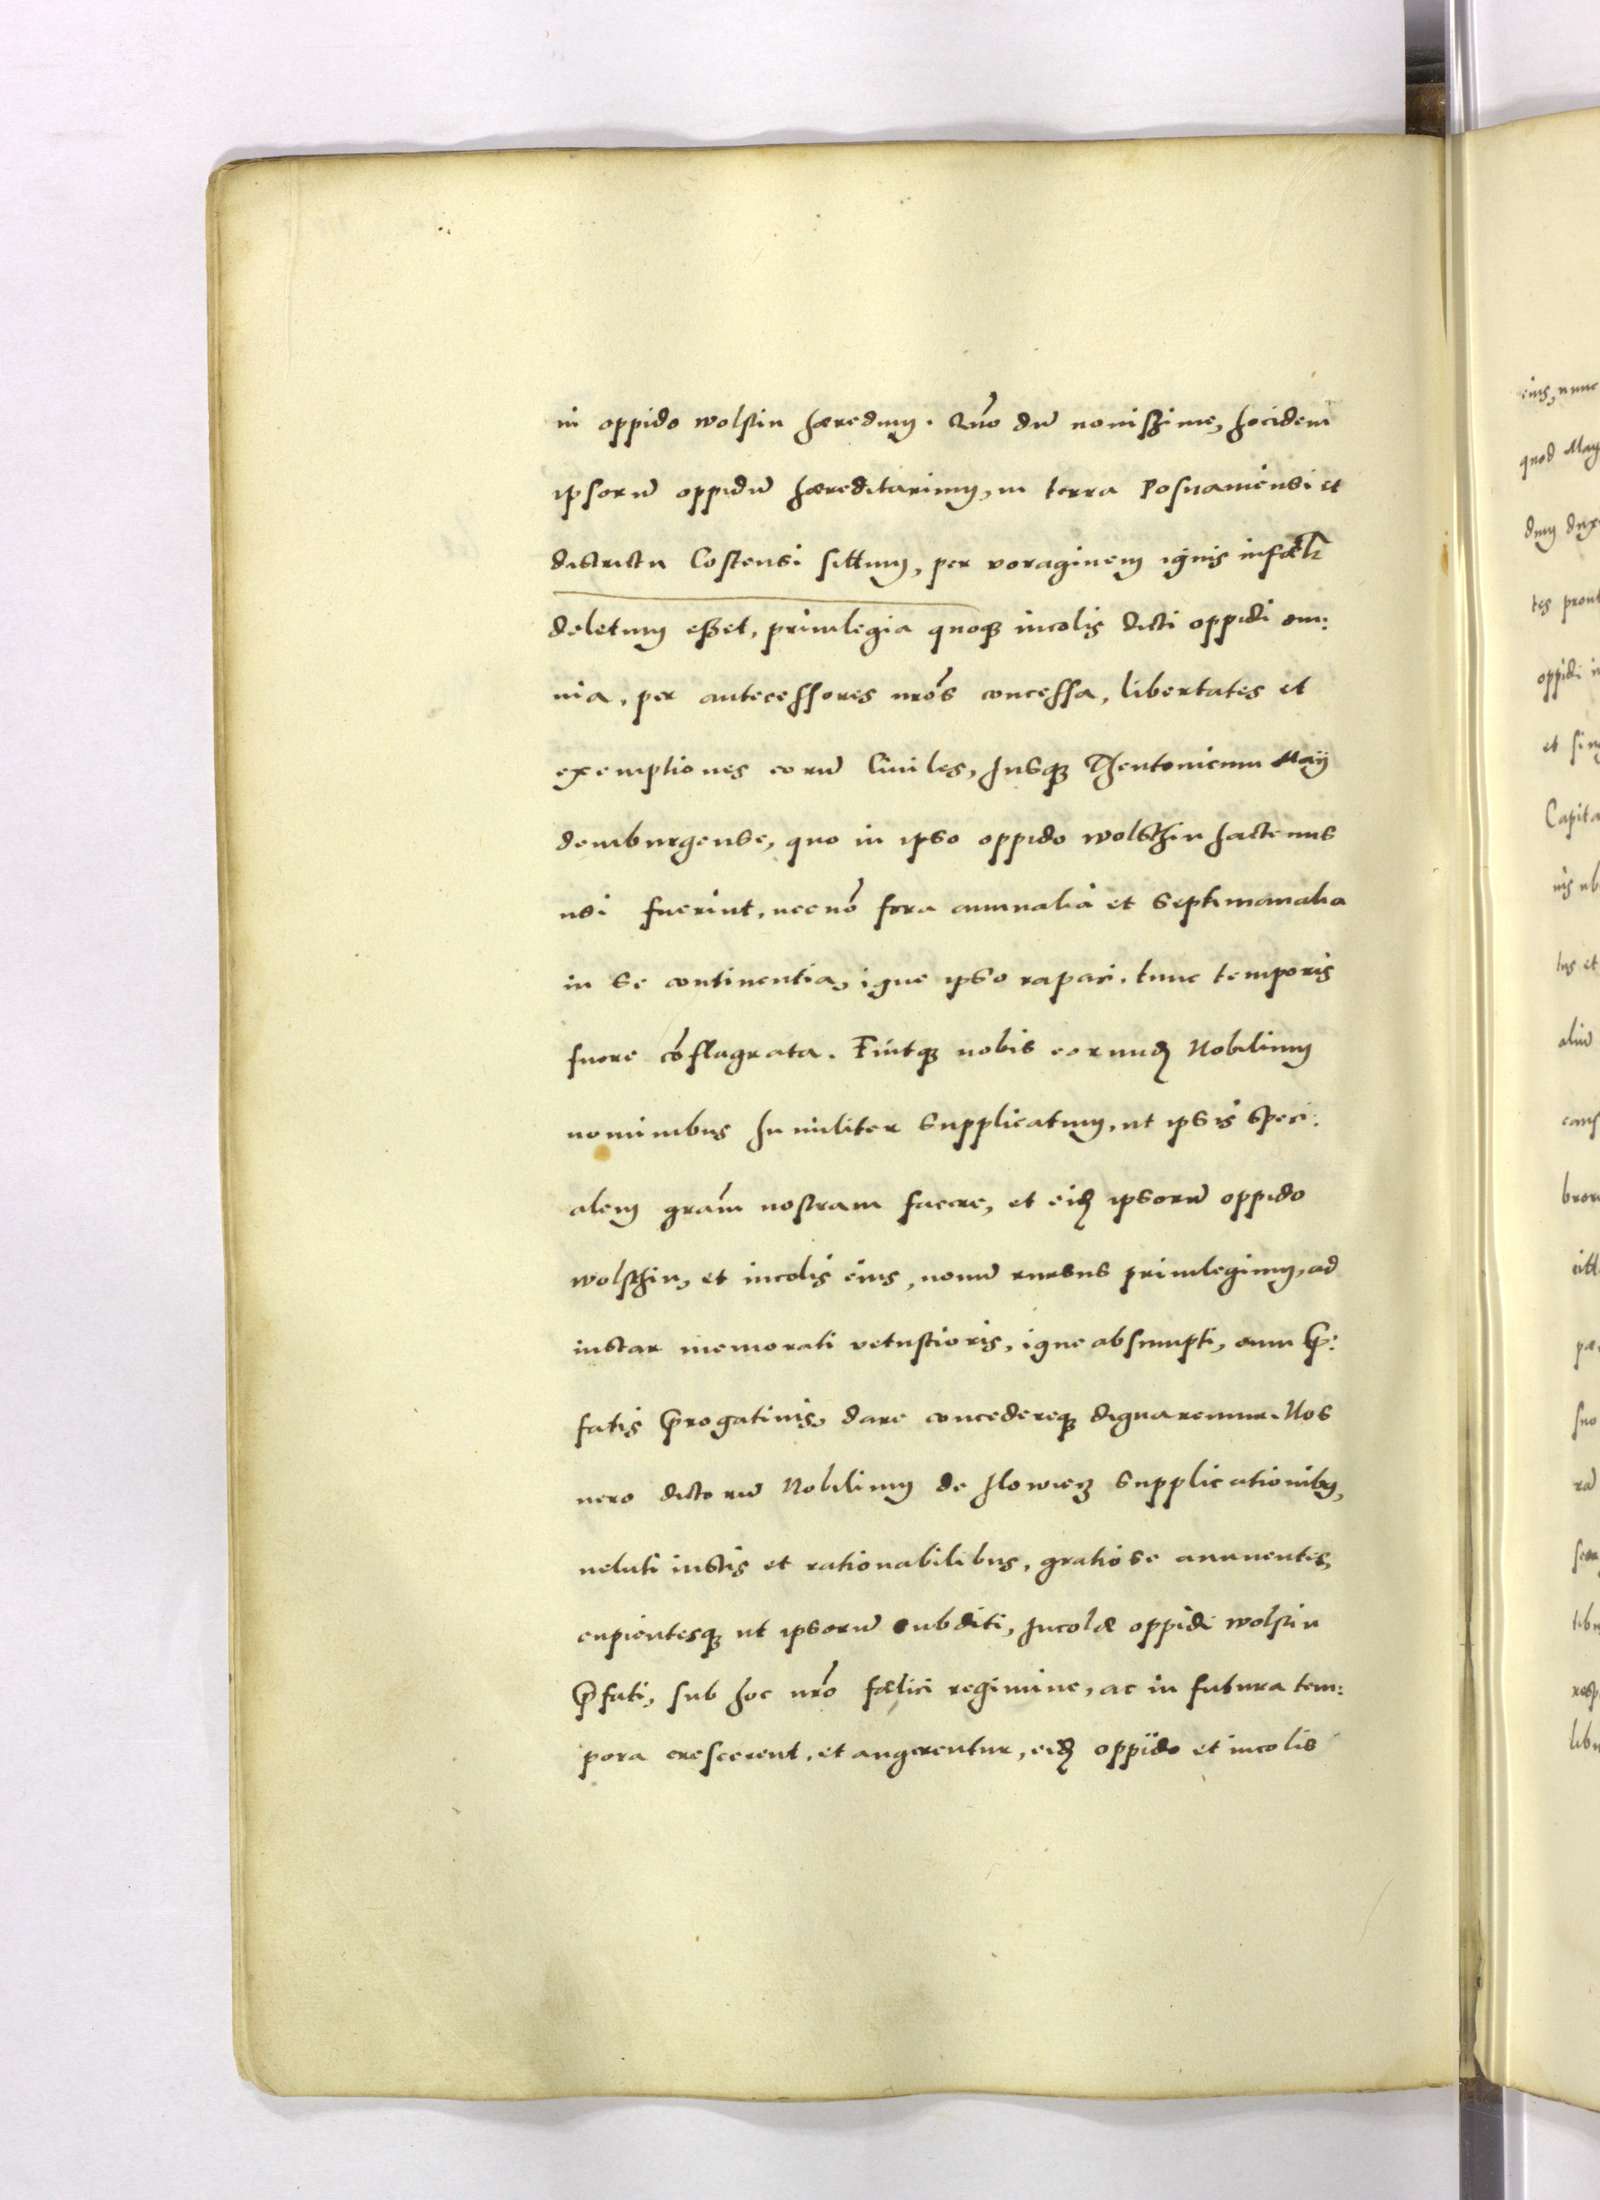 in oppido wolstin hæredum. Qm̄o dū nouiszime, hocidem
ipsorū oppidū hæreditarium, in terra Posnaniensi et
districtu Costensi sittum, per voraginem ignis infœlr̄
deletum eszet, priuilegia quoqȝ incolis dicti oppidi om:
nia, per antecessores nr̄os concessa, libertates et
exemptiones eorū Ciuiles, Jusqȝ Thentonicum May
demburgense, quo in ipso oppido wolsthin hactenus
usi fuerint, necnō fora annualia et septimanalia
in se continentia, igne ipso rapaci, tunc temporis
fuere cōflagrata. Fuitqȝ nobis eorundȝ Nobilium
nominibus humiliter supplicatum, ut ipsis speci:
alem gram̄ nostram facere, et eidȝ ipsorū oppido
wolsthin, et incolis eius, nouū rursus priuilegium, ad
instar memorati vetustioris, igne absumpti, cum p̄:
fatis p̄rogatiuis, dare concedereqȝ dignaremur. Nos
uero dictorū Nobilium de Jlowiecz supplicationibus,
ueluti iustis et rationabilibus, gratiose annuentes,
cupientesqȝ ut ipsorū subditi, Jncolæ oppidi wolstin
p̄fati, sub hoc nr̄o fælici regimine, ac in futura tem:
pora crescerent, et augerentur, eidȝ oppido et incolis
eius, nunc
quod May
dum
tes prout
oppidi in
et sin
Capita
nis ub
tus et
aliū
suo
rū
libu